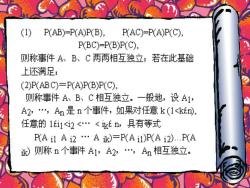 (1) P(AB)=P(A)P(B), P(AC)=P(A)P(C),
P(BC)=P(B)P(C),
则称事件 A、B、C 两两相互独立；若在此基础
上还满足：
(2)P(ABC)＝P(A)P(B)P(C),
则称事件 A、B、C 相互独立。一般地，设 A1，
A2，…，An 是 n 个事件，如果对任意 k (1<k≤n),
任意的 1≤i1<i2 <… < ik≤ n，具有等式
P(A i1 A i2 … A ik)=P(A i1)P(A i2)…P(A
ik) 则称 n 个事件 A1，A2，… An 相互独立。